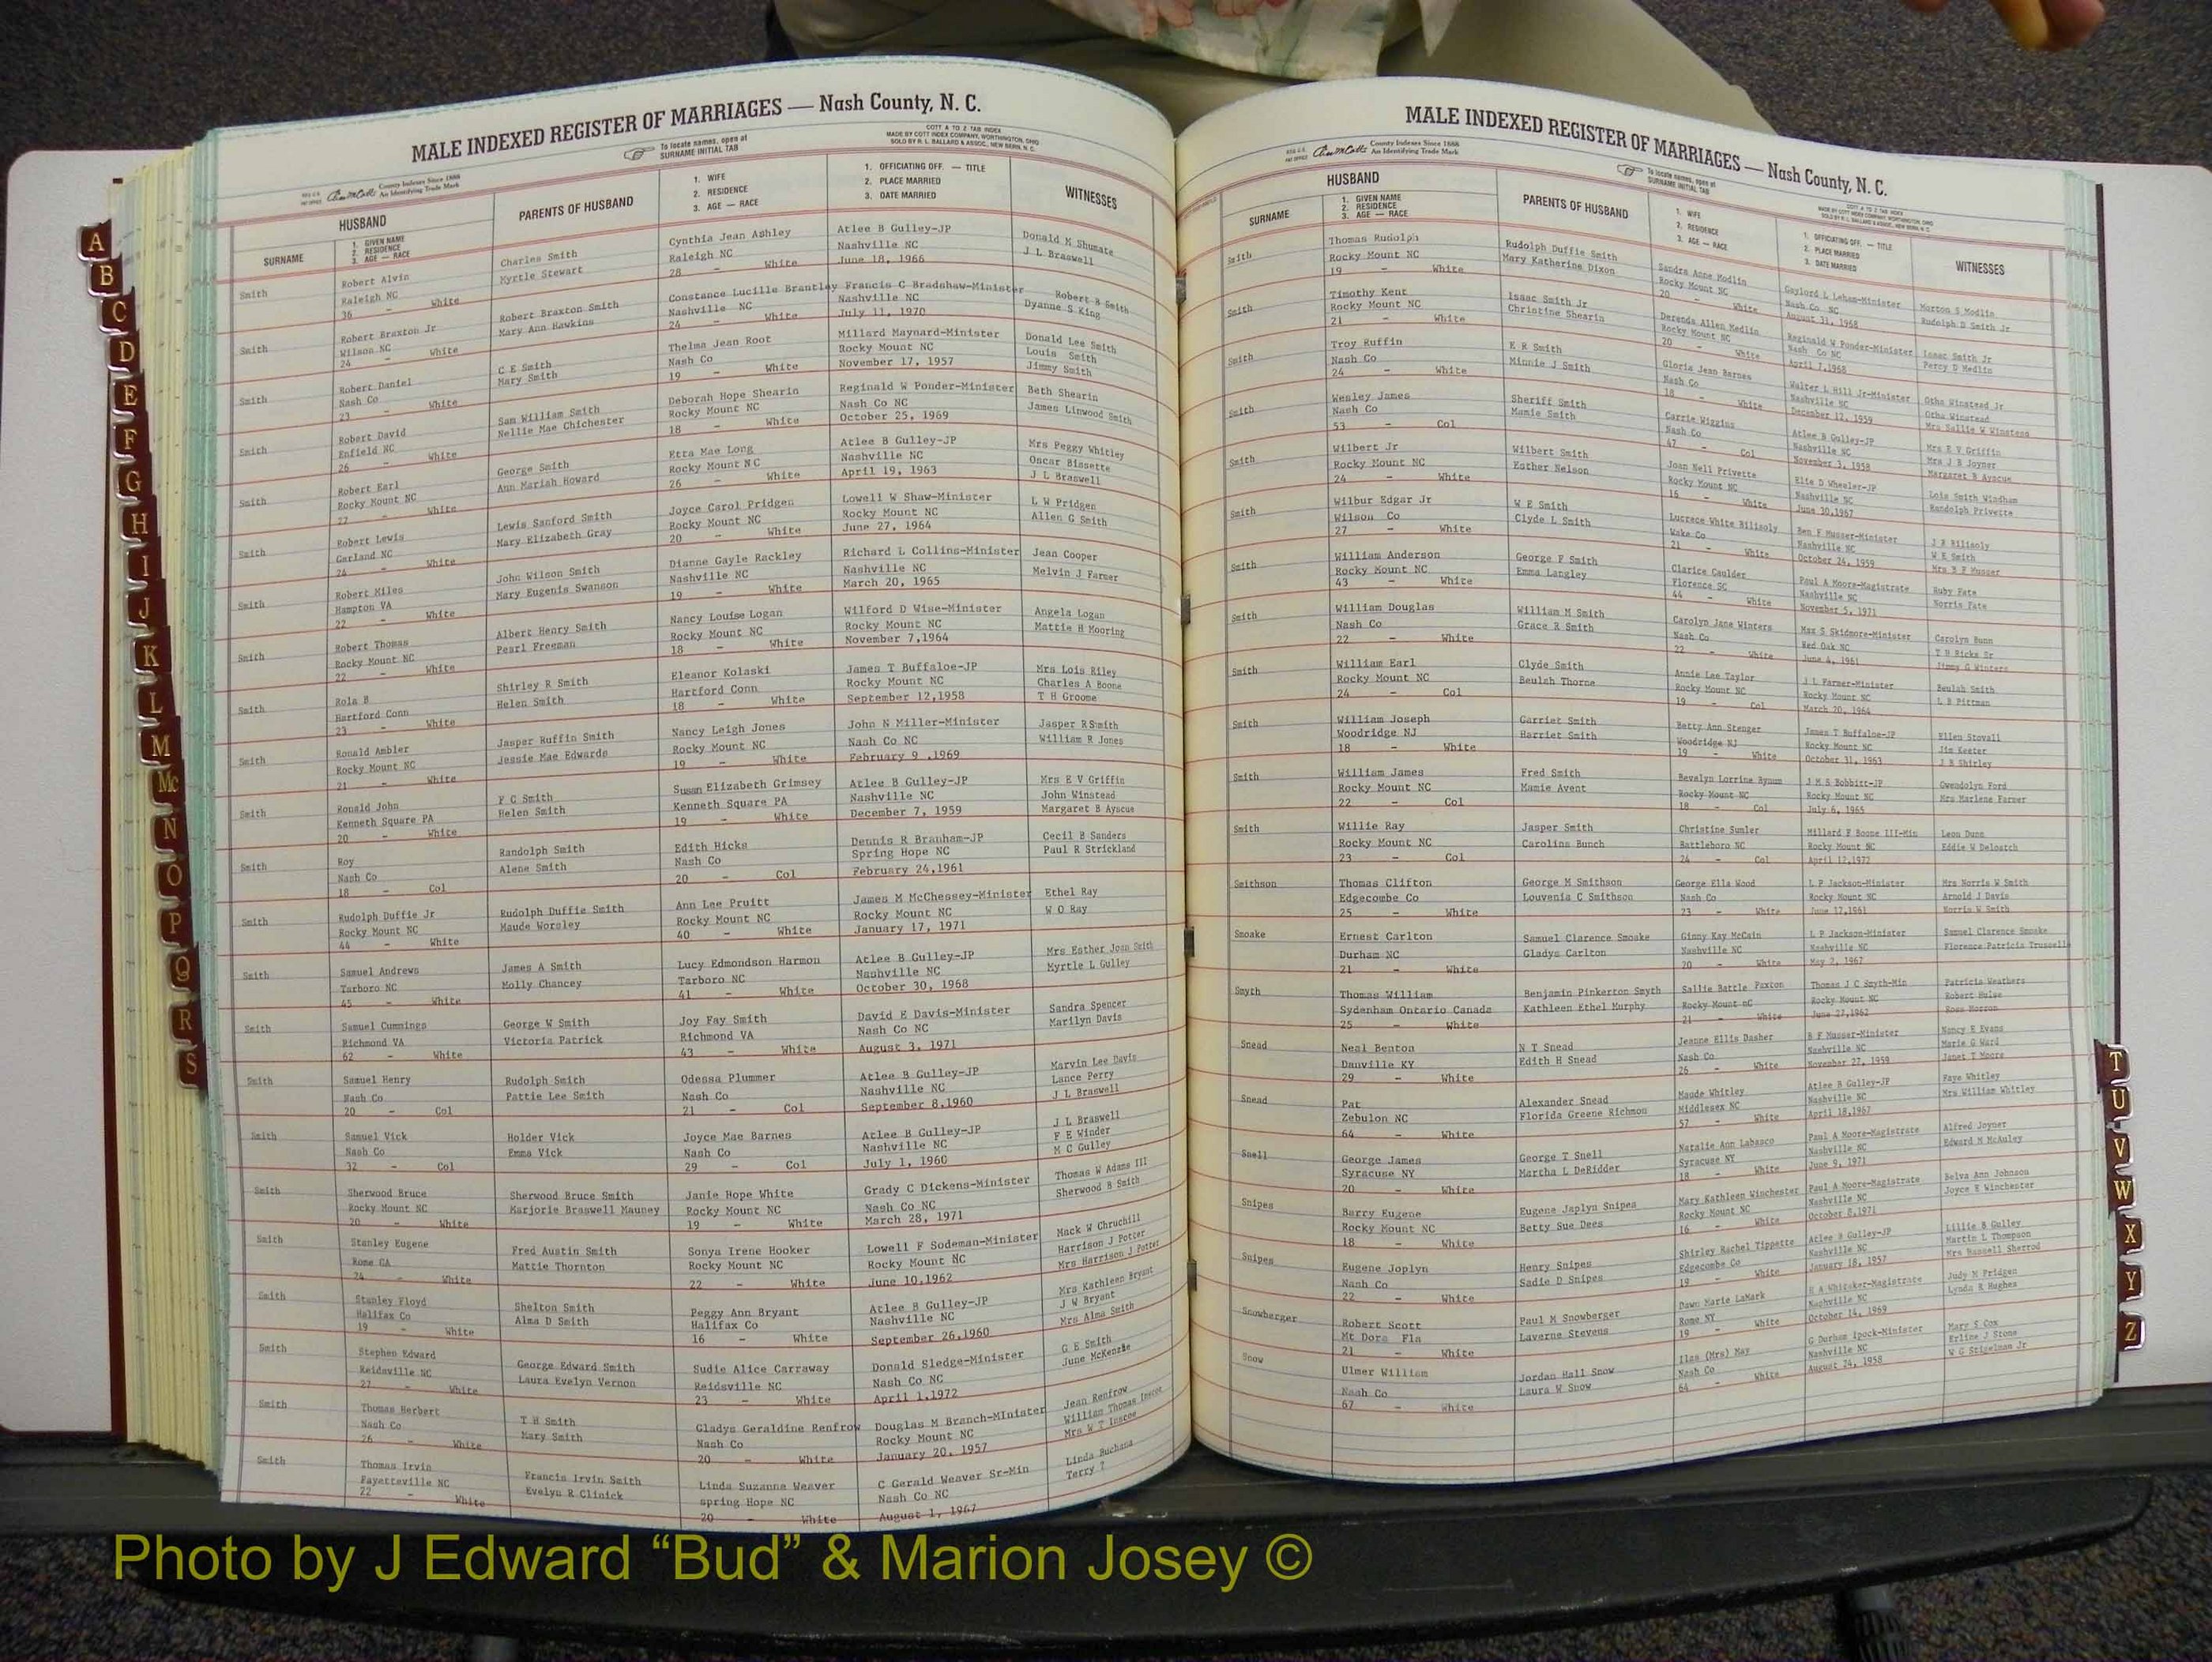 MALE INDEXED REGISTER OF MARRIAGES — Nash County, N. C.
To locate names, open at
SURNAME INITIAL TAB
COTT A TO Z TAB INDEX
MADE BY COTT INDEX COMPANY, WORTHINGTON, OHIO
SOLD BY R. L. BALLARD & ASSOC., NEW BERN, N. C.
County Indexes Since 1888
An Identifying Trade Mark
HUSBAND
SURNAME
1. GIVEN NAME
2. RESIDENCE
3. AGE — RACE
PARENTS OF HUSBAND
1. WIFE
2. RESIDENCE
3. AGE — RACE
1. OFFICIATING OFF. — TITLE
2. PLACE MARRIED
3. DATE MARRIED
WITNESSES
Smith Robert Alvin Charles Smith Cynthia Jean Ashley Atlee B Gulley-JP Donald M Shumate
Raleigh NC Myrtle Stewart Raleigh NC Nashville NC J L Braswell
36 - White 28 - White June 18, 1966
Smith Robert Braxton Jr Robert Braxton Smith Constance Lucille Brantley Francis C Bradshaw-Minister Robert B Smith
Wilson NC Mary Ann Hawkins Nashville NC Nashville NC Dyanne S King
24 - White 24 - White July 11, 1970
Smith Robert Daniel C E Smith Thelma Jean Root Millard Maynard-Minister Donald Lee Smith
Nash Co Mary Smith Nash Co Rocky Mount NC Louis Smith
23 - White 19 - White November 17, 1957 Jimmy Smith
Smith Robert David Sam William Smith Deborah Hope Shearin Reginald W Ponder-Minister Beth Shearin
Enfield NC Nellie Mae Chichester Rocky Mount NC Nash Co NC James Linwood Smith
26 - White 18 - White October 25, 1969
Smith Robert Earl George Smith Etta Mae Long Atlee B Gulley-JP Mrs Peggy Whitley
Rocky Mount NC Ann Mariah Howard Rocky Mount NC Nashville NC Oscar Bissette
22 - White 26 - White April 19, 1963 J L Braswell
Smith Robert Lewis Lewis Sanford Smith Joyce Carol Pridgen Lowell W Shaw-Minister L W Pridgen
Garland NC Mary Elizabeth Gray Rocky Mount NC Rocky Mount NC Allen G Smith
24 - White 20 - White June 27, 1964
Smith Robert Miles John Wilson Smith Dianne Gayle Rackley Richard L Collins-Minister Jean Cooper
Hampton VA Mary Eugenis Swanson Nashville NC Nashville NC Melvin J Farmer
22 - White 19 - White March 20, 1965
Smith Robert Thomas Albert Henry Smith Nancy Louise Logan Wilford D Wise-Minister Angela Logan
Rocky Mount NC Pearl Freeman Rocky Mount NC Rocky Mount NC Mattie H Mooring
22 - White 18 - White November 7,1964
Smith Rola B Shirley R Smith Eleanor Kolaski James T Buffaloe-JP Mrs Lois Riley
Hartford Conn Helen Smith Hartford Conn Rocky Mount NC Charles A Boone
23 - White 18 - White September 12,1958 T H Groome
Smith Ronald Ambler Jasper Ruffin Smith Nancy Leigh Jones John N Miller-Minister Jasper R Smith
Rocky Mount NC Jessie Mae Edwards Rocky Mount NC Nash Co NC William R Jones
21 - White 19 - White February 9 ,1969
Smith Ronald John F C Smith Susan Elizabeth Grimsey Atlee B Gulley-JP Mrs E V Griffin
Kenneth Square PA Helen Smith Kenneth Square PA Nashville NC John Winstead
20 - White 19 - White December 7, 1959 Margaret B Ayscue
Smith Roy Randolph Smith Edith Hicks Dennis R Branham-JP Cecil B Sanders
Nash Co Alene Smith Nash Co Spring Hope NC Paul R Strickland
18 - Col 20 - Col February 24,1961
Smith Rudolph Duffie Jr Rudolph Duffie Smith Ann Lee Pruitt James M McChessey-Minister Ethel Ray
Rocky Mount NC Maude Worsley Rocky Mount NC Rocky Mount NC W O Ray
44 - White 40 - White January 17, 1971
Smith Samuel Andrews James A Smith Lucy Edmondson Harmon Atlee B Gulley-JP Mrs Esther Joan Smith
Tarboro NC Molly Chancey Tarboro NC Nashville NC Myrtle L Gulley
45 - White 41 - White October 30, 1968
Smith Samuel Cummings George W Smith Joy Fay Smith David E Davis-Minister Sandra Spencer
Richmond VA Victoria Patrick Richmond VA Nash Co NC Marilyn Davis
62 - White 43 - White August 3, 1971
Smith Samuel Henry Rudolph Smith Odessa Plummer Atlee B Gulley-JP Marvin Lee Davis
Nash Co Pattie Lee Smith Nash Co Nashville NC Lance Perry
20 - Col 21 - Col September 8,1960 J L Braswell
Smith Samuel Vick Holder Vick Joyce Mae Barnes Atlee B Gulley-JP J L Braswell
Nash Co Emma Vick Nash Co Nashville NC F E Winder
32 - Col 29 - Col July 1, 1960 M C Gulley
Smith Sherwood Bruce Sherwood Bruce Smith Janie Hope White Grady C Dickens-Minister Thomas W Adams III
Rocky Mount NC Marjorie Braswell Mauney Rocky Mount NC Nash Co NC Sherwood B Smith
20 - White 19 - White March 28, 1971
Smith Stanley Eugene Fred Austin Smith Sonya Irene Hooker Lowell F Sodeman-Minister Mack W Chruchill
Rome GA Mattie Thornton Rocky Mount NC Rocky Mount NC Harrison J Potter
24 - White 22 - White June 10,1962 Mrs Harrison J Potter
Smith Stanley Floyd Shelton Smith Peggy Ann Bryant Atlee B Gulley-JP Mrs Kathleen Bryant
Halifax Co Alma D Smith Halifax Co Nashville NC J W Bryant
19 - White 16 - White September 26,1960 Mrs Alma Smith
Smith Stephen Edward George Edward Smith Sudie Alice Carraway Donald Sledge-Minister G E Smith
Reidsville NC Laura Evelyn Vernon Reidsville NC Nash Co NC June McKenzie
22 - White 23 - White April 1,1972
Smith Thomas Herbert T H Smith Gladys Geraldine Renfrow Douglas M Branch-MInister Jean Renfrow
Nash Co Mary Smith Nash Co Rocky Mount NC William Thomas Inscoe
26 - White 20 - White January 20, 1957 Mrs W T Inscoe
Smith Thomas Irvin Francis Irvin Smith Linda Suzanne Weaver C Gerald Weaver Sr-Min Linda Buchana
Fayetteville NC Evelyn R Clinick spring Hope NC Nash Co NC Terry ?
22 - White 20 - White August 1, 1967
MALE INDEXED REGISTER OF MARRIAGES — Nash County, N. C.
County Indexes Since 1888
An Identifying Trade Mark
To locate names, open at
SURNAME INITIAL TAB
COTT A TO Z TAB INDEX
MADE BY COTT INDEX COMPANY, WORTHINGTON, OHIO
SOLD BY R. L. BALLARD & ASSOC., NEW BERN, N. C.
HUSBAND
SURNAME
1. GIVEN NAME
2. RESIDENCE
3. AGE — RACE
PARENTS OF HUSBAND
1. WIFE
2. RESIDENCE
3. AGE — RACE
1. OFFICIATING OFF. — TITLE
2. PLACE MARRIED
3. DATE MARRIED
WITNESSES
Smith Thomas Rudolph Rudolph Duffie Smith Sandra Anne Modlin Gaylord L Leham-Minister Murton S Modlin
Rocky Mount NC Mary Katherine Dixon Rocky Mount NC Nash Co NC Rudolph D Smith Jr
19 - White 20 - White August 31, 1968
Smith Timothy Kent Isaac Smith Jr Derenda Allen Medlin Reginald W Ponder-Minister Isaac Smith Jr
Rocky Mount NC Christine Shearin Rocky Mount NC Nash Co NC Percy D Medlin
21 - White 20 - White April 7,1968
Smith Troy Ruffin E R Smith Gloria Jean Barnes Walter L Hill Jr-Minister Otha Winstead Jr
Nash Co Minnie J Smith Nash Co Nashville NC Otha Winstead
24 - White 18 - White December 12, 1959 Mrs Sallie W Winstead
Smith Wesley James Sheriff Smith Carrie Wiggins Atlee B Gulley-JP Mrs E V Griffin
Nash Co Mamie Smith Nash Co Nashville NC Mrs J B Joyner
53 - Col 47 - Col November 3, 1958 Margaret B Ayscue
Smith Wilbert Jr Wilbert Smith Joan Nell Privette Elie D Wheeler-JP Lois Smith Windham
Rocky Mount NC Esther Nelson Rocky Mount NC Nashville NC Randolph Privette
24 - White 16 - White June 30,1967
Smith Wilbur Edgar Jr W E Smith Lucrece White Bilisoly Ben F Musser-Minister J R Bilisoly
Wilson Co Clyde L Smith Wake Co Nashville NC W E Smith
27 - White 21 - White October 24, 1959 Mrs B F Musser
Smith William Anderson George F Smith Clarice Caulder Paul A Moore-Magistrate Ruby Pate
Rocky Mount NC Emma Langley Florence SC Nashville NC Norris Pate
43 - White 44 - White November 5, 1971
Smith William Douglas William M Smith Carolyn Jane Winters Max S Skidmore-Minister Carolyn Bunn
Nash Co Grace R Smith Nash Co Red Oak NC T H Ricks Sr
22 - White 22 - White June 4, 1961 Jimmy G Winters
Smith William Earl Clyde Smith Annie Lee Taylor J L Farmer-Minister Beulah Smith
Rocky Mount NC Beulah Thorne Rocky Mount NC Rocky Mount NC L B Pittman
24 - Col 19 - Col March 20, 1964
Smith William Joseph Garriet Smith Betty Ann Stenger James T Buffaloe-JP Ellen Stovall
Woodridge NJ Harriet Smith Woodridge NJ Rocky Mount NC Jim Keeter
18 - White 19 - White October 31, 1963 J B Shirley
Smith William James Fred Smith Bevelyn Lorrine Bynum J M S Bobbitt-JP Gwendolyn Ford
Rocky Mount NC Mamie Avent Rocky Mount NC Rocky Mount NC Mrs Marlene Farmer
22 - Col 18 - Col July 6, 1965
Smith Willie Ray Jasper Smith Christine Sumler Millard F Boone III-Min Leon Dunn
Rocky Mount NC Carolina Bunch Battleboro NC Rocky Mount NC Eddie W Deloatch
23 - Col 24 - Col April 12,1972
Smithson Thomas Clifton George M Smithson George Ella Wood L P Jackson-Minister Mrs Norris W Smith
Edgecombe Co Louvenia C Smithson Nash Co Rocky Mount NC Arnold J Davis
25 - White 23 - White June 17,1961 Norris W Smith
Smoake Ernest Carlton Samuel Clarence Smoake Ginny Kay McCain L P Jackson-Minister Samuel Clarence Smoake
Durham NC Gladys Carlton Nashville NC Nashville NC Florence Patricia Trussell
21 - White 20 - White May 2, 1967
Smyth Thomas William Benjamin Pinkerton Smyth Sallie Battle Paxton Thomas J C Smyth-Min Patricia Weathers
Sydenham Ontario Canada Kathleen Ethel Murphy Rocky Mount nC Rocky Mount NC Robert Hulse
25 - White 21 - White June 27,1962 Ross Morton
Snead Neal Benton N T Snead Jeanne Ellis Dasher B F Musser-Minister Nancy E Evans
Danville KY Edith H Snead Nash Co Nashville NC Marie G Ward
29 - White 26 - White November 27, 1959 Janet T Moore
Snead Pat Alexander Snead Maude Whitley Atlee B Gulley-JP Faye Whitley
Zebulon NC Florida Greene Richmon Middlesex NC Nashville NC Mrs William Whitley
64 - White 57 - White April 18,1967
Snell George James George T Snell Natalie Ann Labasco Paul A Moore-Magistrate Alfred Joyner
Syracuse NY Martha L DeRidder Syracuse NY Nashville NC Edward M McAuley
20 - White 18 - White June 9, 1971
Snipes Barry Eugene Eugene Japlyn Snipes Mary Kathleen Winchester Paul A Moore-Magistrate Belva Ann Johnson
Rocky Mount NC Betty Sue Dees Rocky Mount NC Nashville NC Joyce E Winchester
18 - White 16 - White October 8,1971
Snipes Eugene Joplyn Henry Snipes Shirley Rachel Tippette Atlee B Gulley-JP Lillie B Gulley
Nash Co Sadie D Snipes Edgecombe Co Nashville NC Martin L Thompson
22 - White 19 - White January 18, 1957 Mrs Russell Sherrod
Snowberger Robert Scott Paul M Snowberger Dawn Marie LaMark R A Whitaker-Magistrate Judy M Pridgen
Mt Dora Fla Laverne Stevens Rome NY Nashville NC Lynda R Hughes
21 - White 19 - White October 14, 1969
Snow Ulmer William Jordan Hall Snow Ilas (Mrs) May G Durham Ipock-Minister Mary S Cox
Nash Co Laura W Snow Nash Co Nashville NC Erline J Stone
67 - White 64 - White August 24, 1958 W G Stigelman Jr
A
B
C
D
E
F
G
H
I
J
K
L
M
Mc
N
O
P
Q
R
S
T
U
V
W
X
Y
Z
Photo by J Edward “Bud” & Marion Josey ©